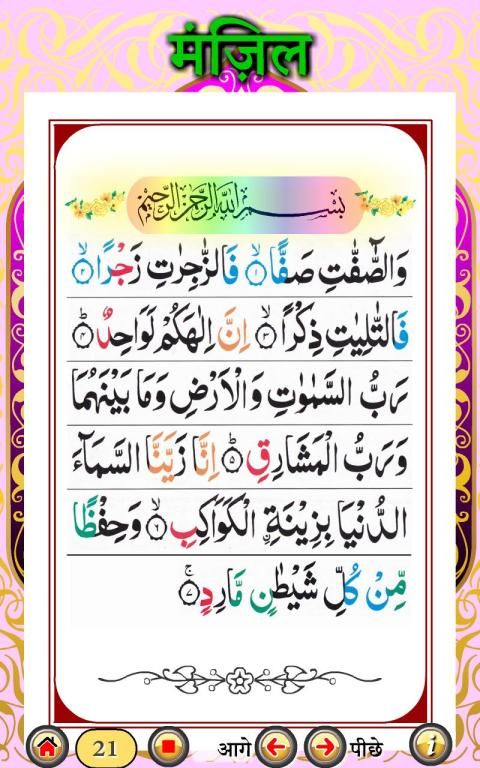 मंज़िल
بِسْمِ اللّٰهِ الرَّحْمٰنِ الرَّحِیْمِ
وَالصّٰٓفّٰتِ صَفًّا ۙ۝۱ فَالزّٰجِرٰتِ زَجْرًا ۙ۝۲
فَالتّٰلِیٰتِ ذِكْرًا ۙ۝۳ اِنَّ اِلٰهَكُمْ لَوَاحِدٌ ؕ۝۴
رَبُّ السَّمٰوٰتِ وَالْاَرْضِ وَمَا بَیْنَهُمَا
وَرَبُّ الْمَشَارِقِ ؕ۝۵ اِنَّا زَیَّنَّا السَّمَآءَ
الدُّنْیَا بِزِیْنَةِ ۣالْكَوَاكِبِ ۙ۝۶ وَحِفْظًا
مِّنْ كُلِّ شَیْطٰنٍ مَّارِدٍ ۚ۝۷
21 आगे पीछे i